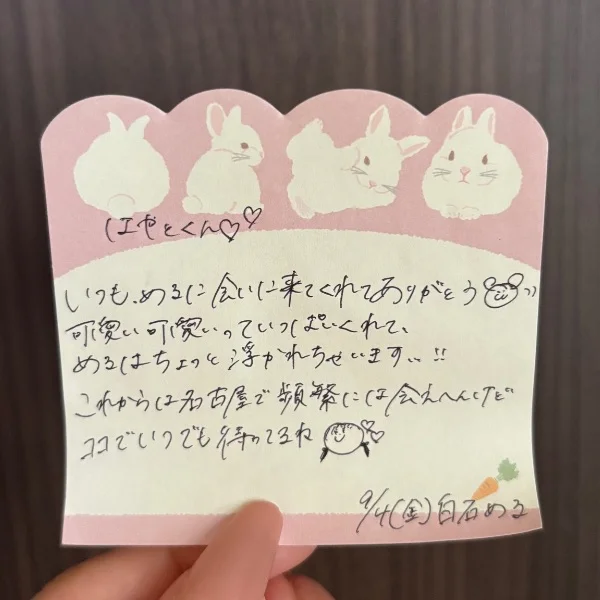 はやとくん♡♡
いつも、めるに会いに来てくれてありがとう
可愛い可愛いっていっぱいくれて、
めるはちょっと浮かれちゃいます、、!!
これからは名古屋で頻繁には会えへんけど
ココでいつでも待ってるね
9/4(金)白石める